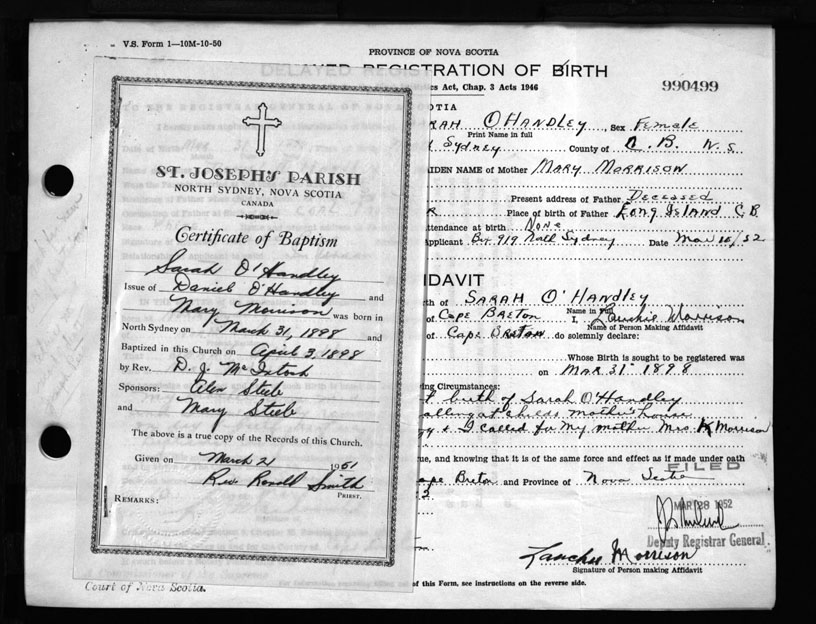 V.S. Form 1—10M-10-50
PROVINCE OF NOVA SCOTIA
DELAYED REGISTRATION OF BIRTH
Act, Chap. 3 Acts 1946
990499
ST. JOSEPH'S PARISH
NORTH SYDNEY, NOVA SCOTIA
CANADA
Certificate of Baptism
Sarah O'Handley
Issue of Daniel O'Handley and
Mary Morrison was born in
North Sydney on March 31, 1898 and
Baptized in this Church on April 3, 1898
by Rev. D. J. McIntosh
Sponsors: Alex Steele
and Mary Steele
The above is a true copy of the Records of this Church.
Given on March 21 1951
Rev. Ronald Smith
PRIEST.
REMARKS:
Court of Nova Scotia.
SCOTIA
ARAH O'HANDLEY, Sex Female
Print Name in full
Sydney County of C. B. N. S.
AIDEN NAME of Mother MARY MORRISON
Present address of Father Deceased
Place of birth of Father Long Island C. B
Attendance at birth None
Applicant Box 919 North Sydney Date Mar 10/52
IDAVIT
rth of SARAH O'HANDLEY
Name in Full
of Cape Breton I, Lauchie Morrison
Name of Person Making Affidavit
of Cape Breton do solemnly declare:
Whose Birth is sought to be registered was
on MAR 31st 1898
ing Circumstances:
t birth of Sarah O'Handley
calling at childs mother's house
& I called for my mother Mrs. K Morrison
ue, and knowing that it is of the same force and effect as if made under oath
FILED
ape Breton and Province of Nova Scotia
MAR 28 1952
Deputy Registrar General
Lauchie Morrison
Signature of Person making Affidavit
of this Form, see instructions on the reverse side.